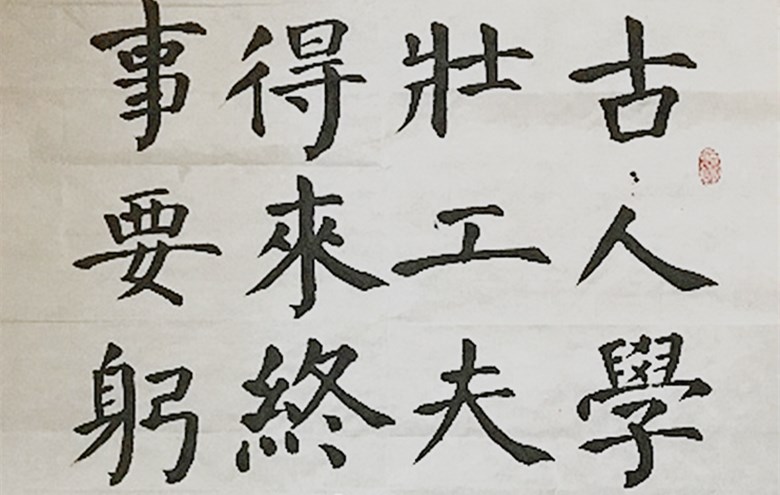 古人學
壯工夫
得來終
事要躬